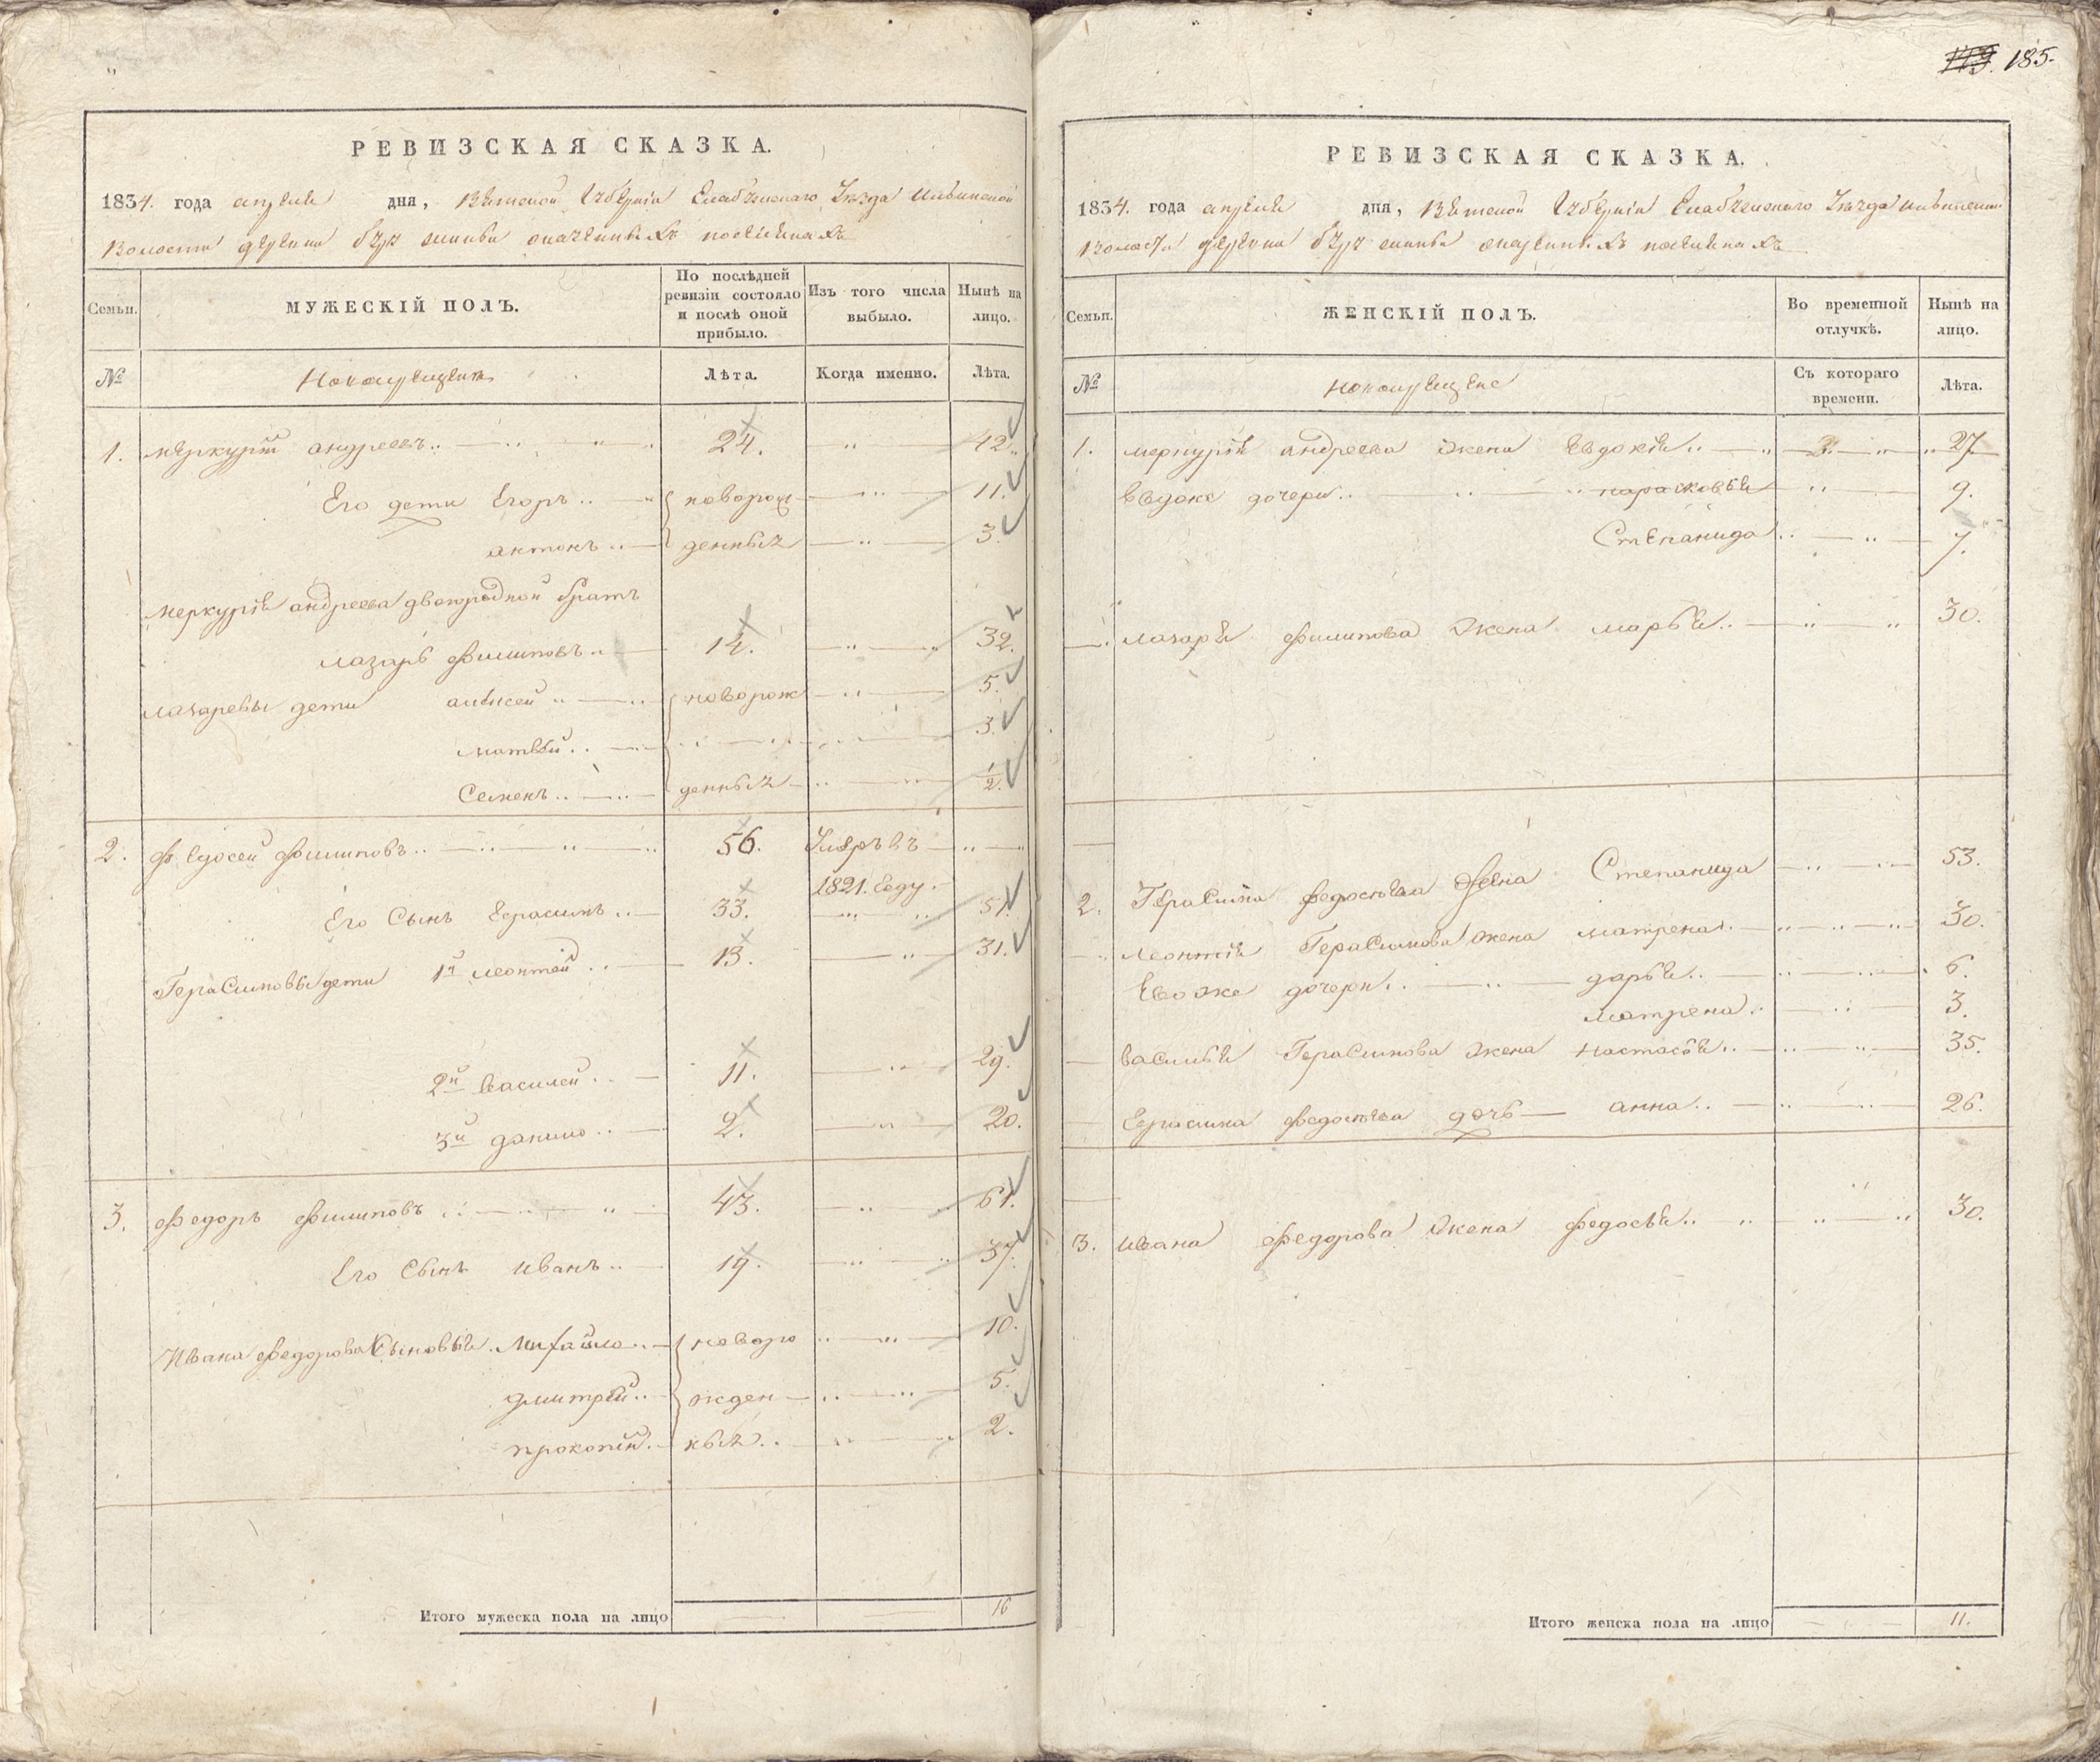 185.
РЕВИЗСКАЯ СКАЗКА.
1834. года апреля дня, Вятской Губернии Елабужскаго Уезда Ильинской
Волости деревни
МУЖЕСКІЙ ПОЛЪ.
По послѣдней ревизіи состояло и послѣ оной прибыло.
Изъ того числа выбыло.
Нынѣ на лицо.
Семьи.
№
Новокрещена
Лѣта.
Когда именно.
Лѣта.
1. меркурій андреевъ 24. 42.
Его дети Егоръ новорож 11.
антонъ денныхъ 3.
меркурія андреева двоюродной братъ
лазарь филиповъ 14. 32.
лазаревы дети алексей новорож 5.
матвѣй 3.
Семенъ денныхъ 1/2
2. Федосей филиповъ 56. Умре въ
1821. году
Его Сынъ Герасимъ 33. 51.
Герасимовы дети 1й леонтей 13. 31.
2й василей 11. 29.
3й данило 2. 20.
3. федоръ филиповъ 43. 61.
Его Сынъ иванъ 19. 37.
Ивана федорова Сыновья Михайло новоро 10.
дмитрій жден 5.
прокопій ныхъ 2.
Итого мужеска пола на лицо 16
РЕВИЗСКАЯ СКАЗКА.
1834. года апреля дня, Вятской Губернии Елабужскаго Уезда Ильинской
Волости деревни
Семьи.
ЖЕНСКІЙ ПОЛЪ.
Во временной отлучкѣ.
Нынѣ на лицо.
№
новокрещене
Съ котораго времени.
Лѣта.
1. меркурія андреева жена Евдокія 27
дочери парасковья 9.
Степанида 7.
лазаря филипова жена марья 30.
2. Герасима федосѣева жена Степанида 53.
леонтія Герасимова жена матрена 30.
Ево же дочери дарья 6.
матрена 3.
василья Герасимова жена настасья 35.
Герасима федосѣева дочь анна 26.
3. ивана федорова жена федосья 30.
Итого женска пола на лицо 11.